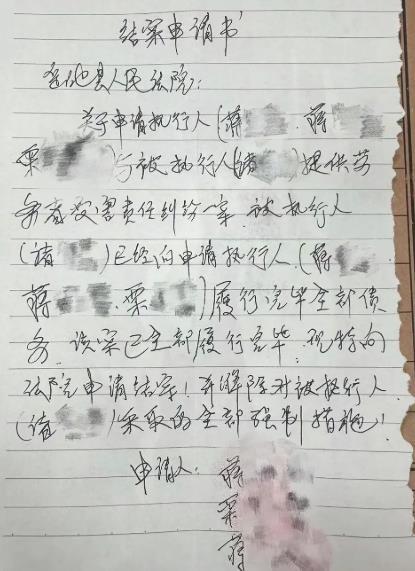 结案申请书
县人民法院：
关于申请执行人(蒋 蒋
栗 与被执行人(诸 )提供劳
务者受害责任纠纷一案，被执行人
(诸 )已经向申请执行人，(蒋
蒋 、栗 )履行完毕全部债
务，该案已全部履行完毕，现特向
法院申请结案！并解除对被执行人
(诸 )采取的全部强制措施！
申请人：蒋
栗
蒋